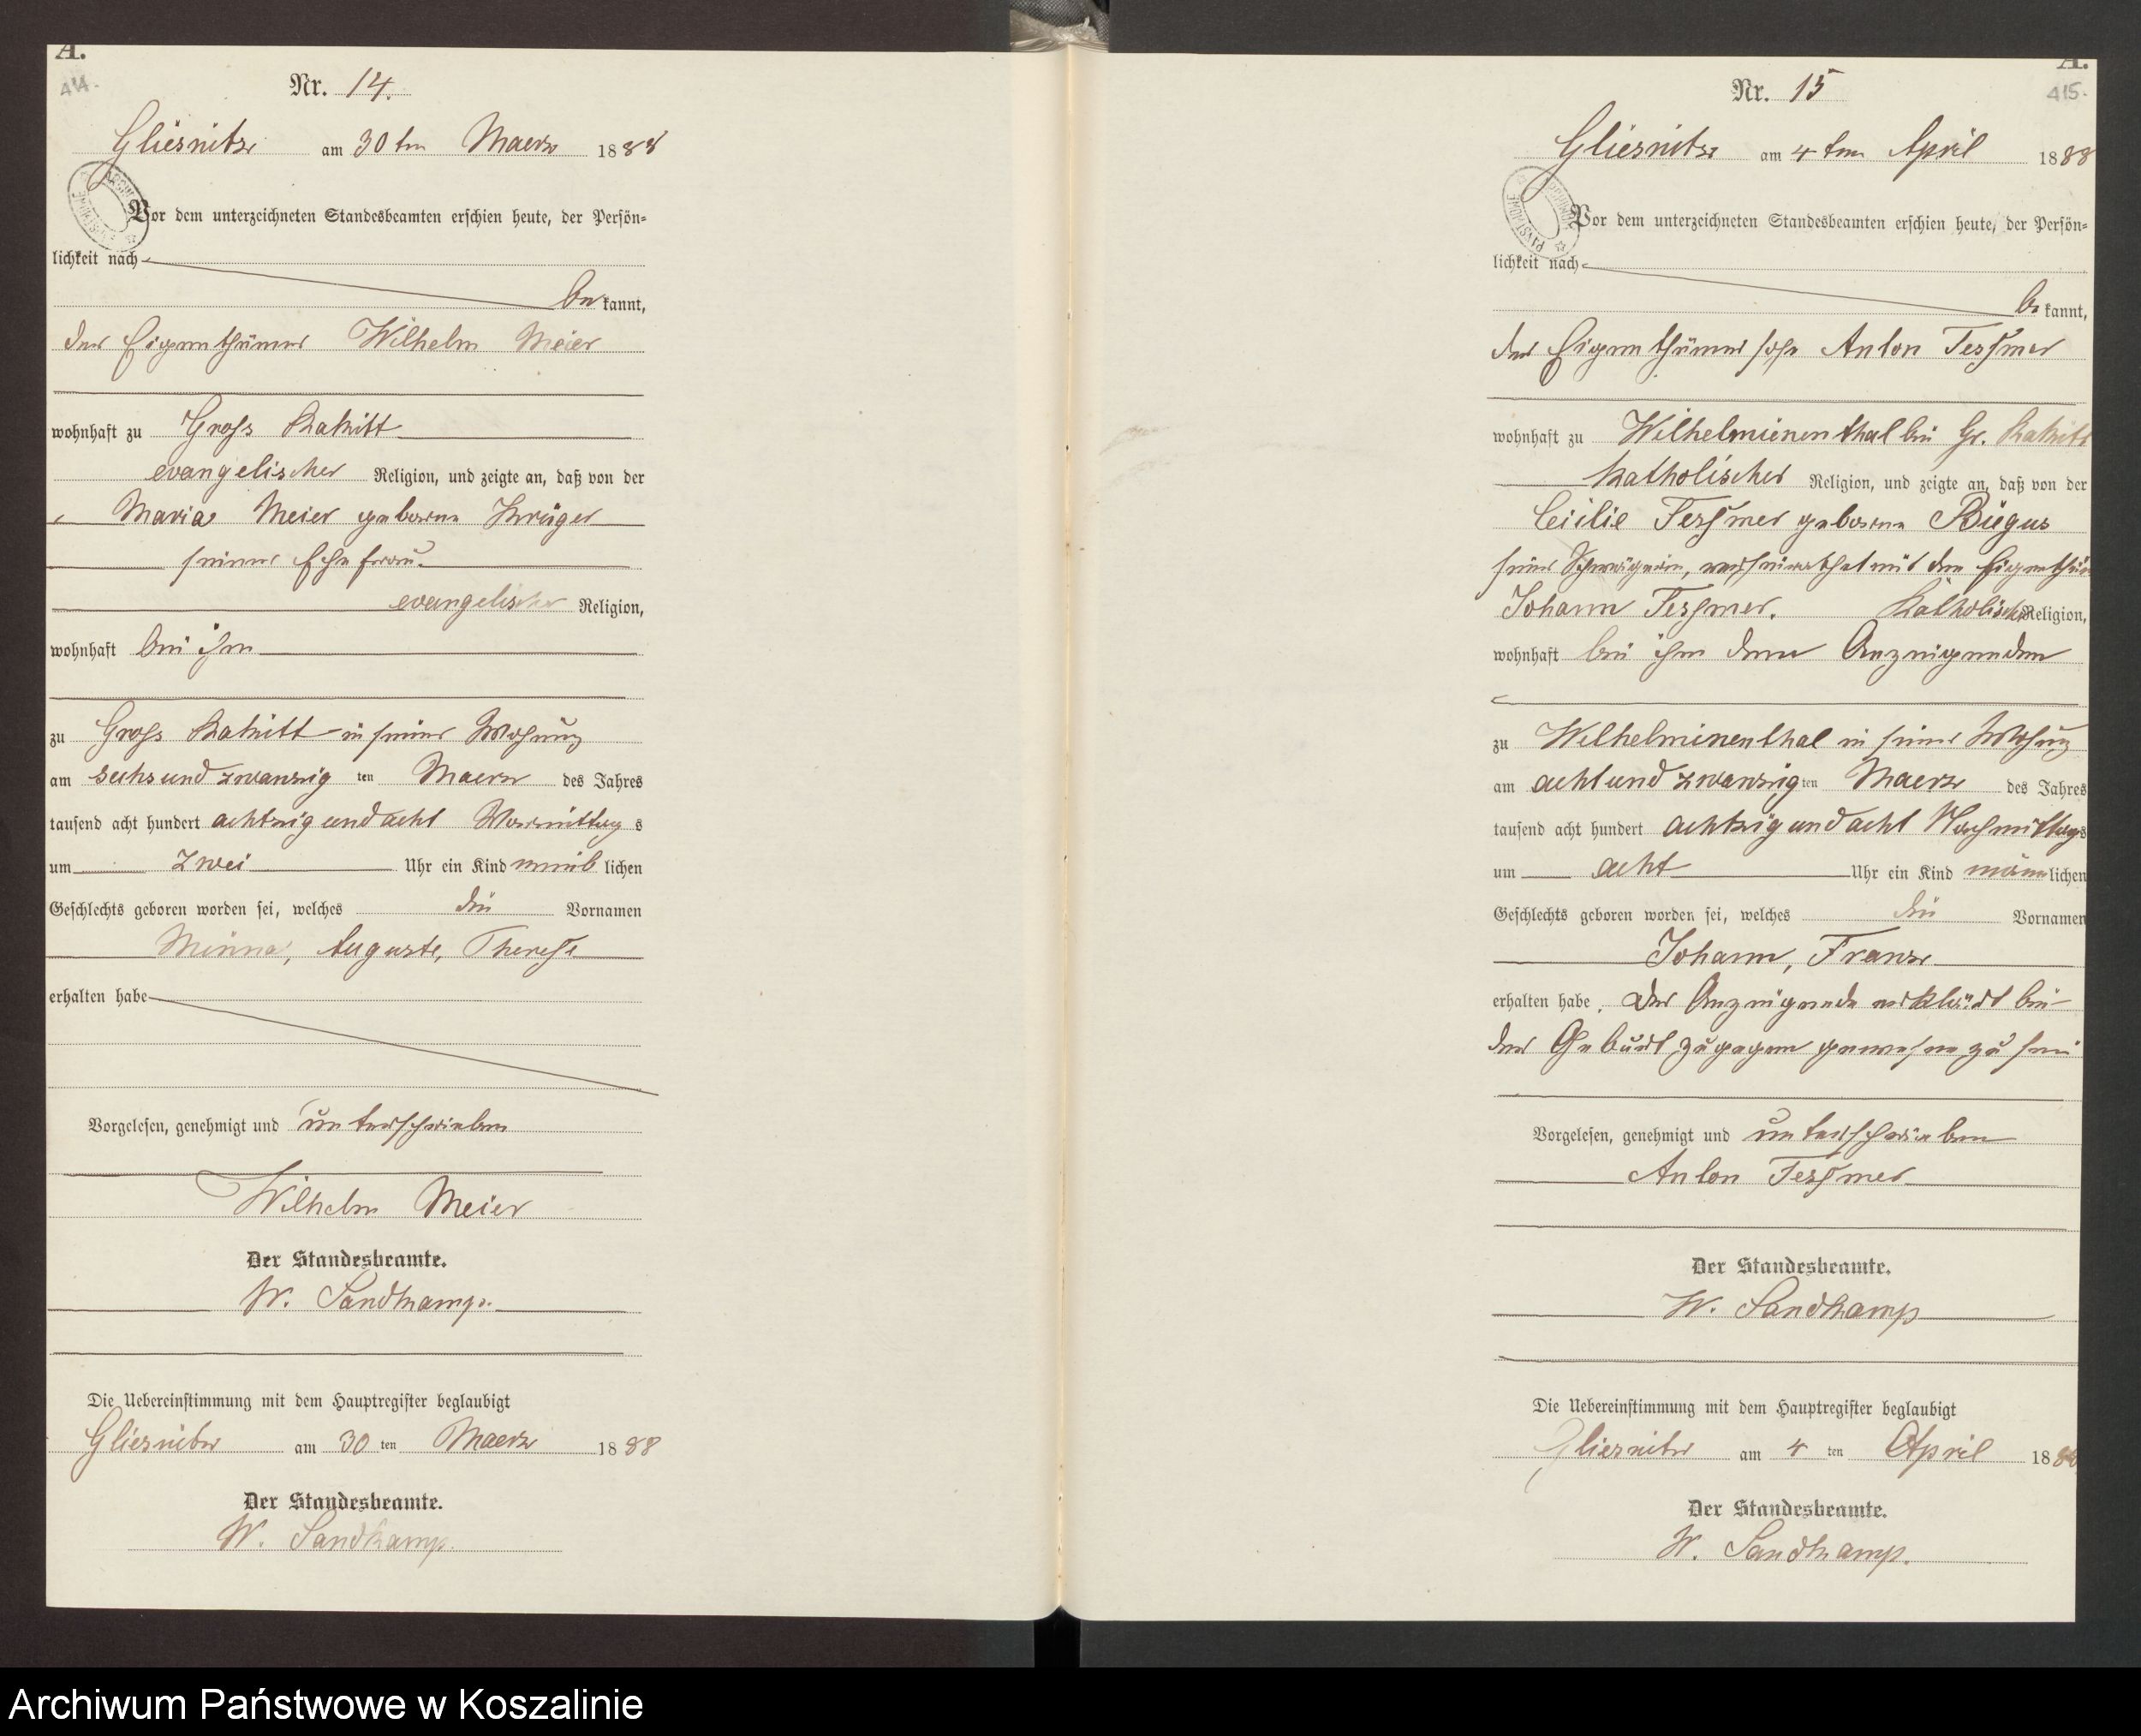 A.
414.
Nr. 14.
Gliesnitz am 30ten Maerz 1888
Vor dem unterzeichneten Standesbeamten erschien heute, der Persön-
lichkeit nach
bekannt,
der Eigenthümer Wilhelm Meier
wohnhaft zu Gross
evangelischer Religion, und zeigte an, daß von der
Maria Meier geborene Krüger
seiner Ehefrau
evangelischer Religion,
wohnhaft bei ihm
zu Gross in seiner Wohnung
am sechsundzwanzig ten Maerz des Jahres
tausend acht hundert achtzig und acht Vormittags
um zwei Uhr ein Kind weiblichen
Geschlechts geboren worden sei, welches die Vornamen
Minna, Auguste, Therese
erhalten habe
Vorgelesen, genehmigt und unterschrieben
Wilhelm Meier
Der Standesbeamte.
W. Sandkamp.
Die Uebereinstimmung mit dem Hauptregister beglaubigt
Gliesnitz am 30 ten Maerz 1888
Der Standesbeamte.
W. Sandkamp.
A.
415.
Nr. 15
Gliesnitz am 4ten April 1888
Vor dem unterzeichneten Standesbeamten erschien heute, der Persön-
lichkeit nach
bekannt,
der Eigenthümersohn Anton Tessmer
wohnhaft zu Wilhelminenthal bei Gr.
katholischer Religion, und zeigte an, daß von der
Cecilie Tessmer geborene
seiner Schwägerin, verheirathet mit dem Eigenthümer
Johann Tessmer. Katholischer Religion,
wohnhaft bei ihm dem Anzeigenden
zu Wilhelminenthal in seiner Wohnung
am achtundzwanzig ten Maerz des Jahres
tausend acht hundert achtzig und acht Nachmittags
um acht Uhr ein Kind männlichen
Geschlechts geboren worden sei, welches die Vornamen
Johann, Franz
erhalten habe. Der Anzeigende erklärt bei
der Geburt zugegen gewesen zu sein
Vorgelesen, genehmigt und unterschrieben
Anton Tessmer
Der Standesbeamte.
W. Sandkamp
Die Uebereinstimmung mit dem Hauptregister beglaubigt
Gliesnitz am 4 ten April 1888
Der Standesbeamte.
W. Sandkamp.
Archiwum Państwowe w Koszalinie